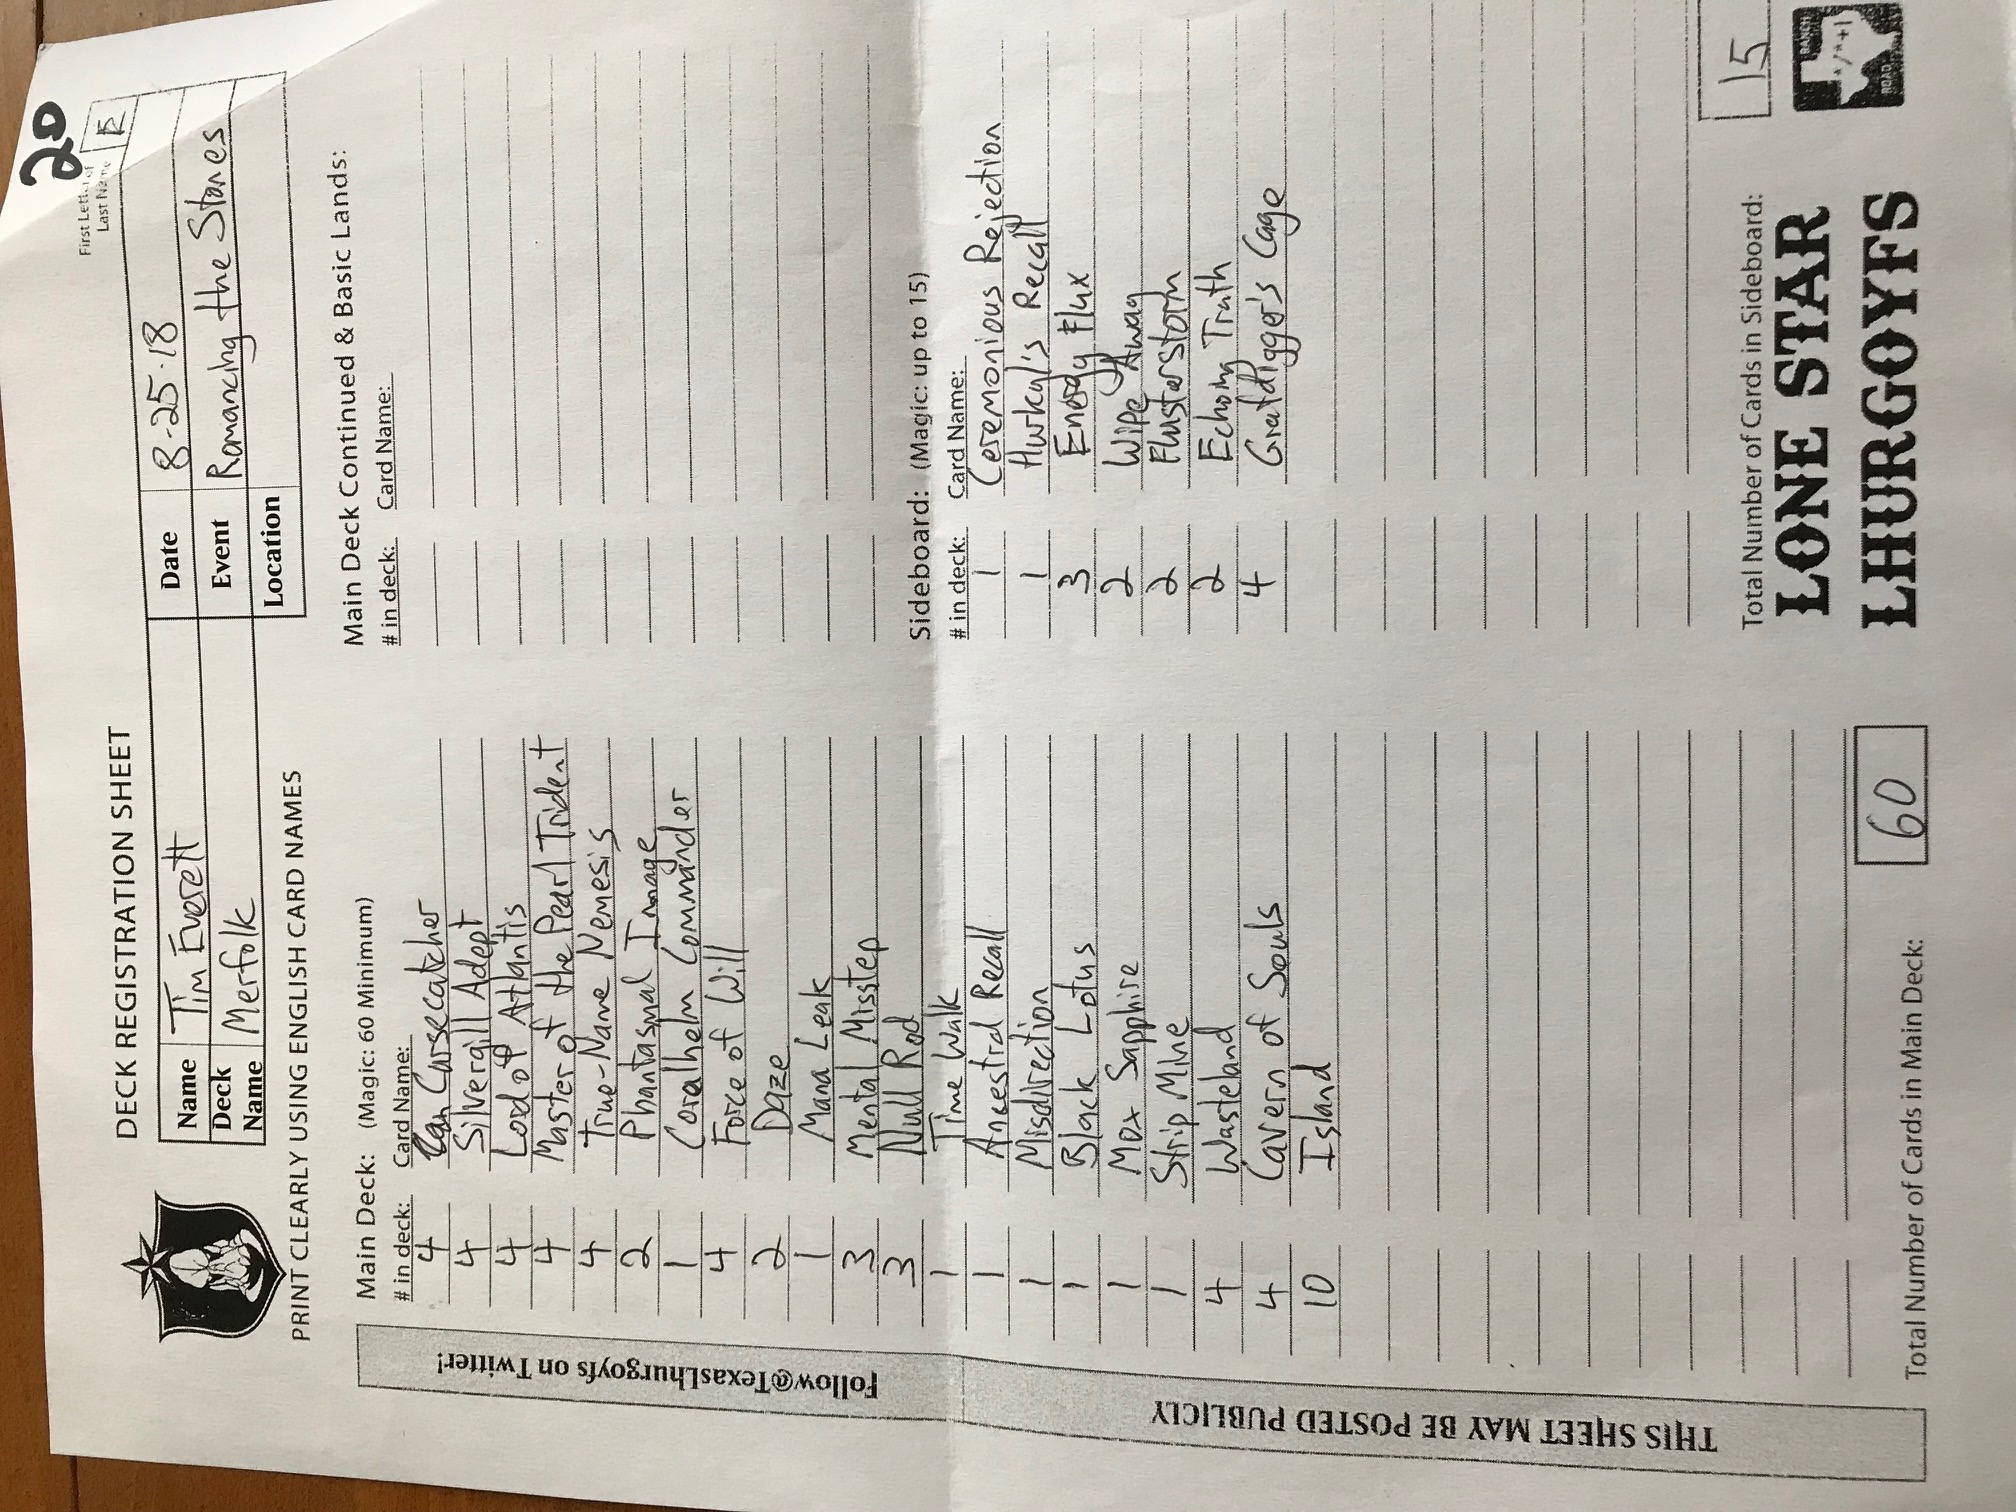 20
First Letter of
Last Name
E
DECK REGISTRATION SHEET
Name Tim Everett
Deck Name Merfolk
Date 8-25-18
Event Romancing the Stones
Location
PRINT CLEARLY USING ENGLISH CARD NAMES
Follow@TexasLhurgoyfs on Twitter!
THIS SHEET MAY BE POSTED PUBLICLY
Main Deck: (Magic: 60 Minimum)
# in deck: Card Name:
4 Cursecatcher
4 Silvergill Adept
4 Lord of Atlantis
4 Master of the Pearl Trident
4 True-Name Nemesis
2 Phantasmal Image
1 Coralhelm Commander
4 Force of Will
2 Daze
1 Mana Leak
3 Mental Misstep
3 Null Rod
1 Time Walk
1 Ancestral Recall
1 Misdirection
1 Black Lotus
1 Mox Sapphire
1 Strip Mine
4 Wasteland
4 Cavern of Souls
10 Island
Total Number of Cards in Main Deck: 60
Main Deck Continued & Basic Lands:
# in deck: Card Name:
Sideboard: (Magic: up to 15)
# in deck: Card Name:
1 Ceremonious Rejection
1 Hurkyl's Recall
3 Energy Flux
2 Wipe Away
2 Flusterstorm
2 Echoing Truth
4 Grafdigger's Cage
Total Number of Cards in Sideboard: 15
LONE STAR
LHURGOYFS
RANCH
*/*+1
ROAD